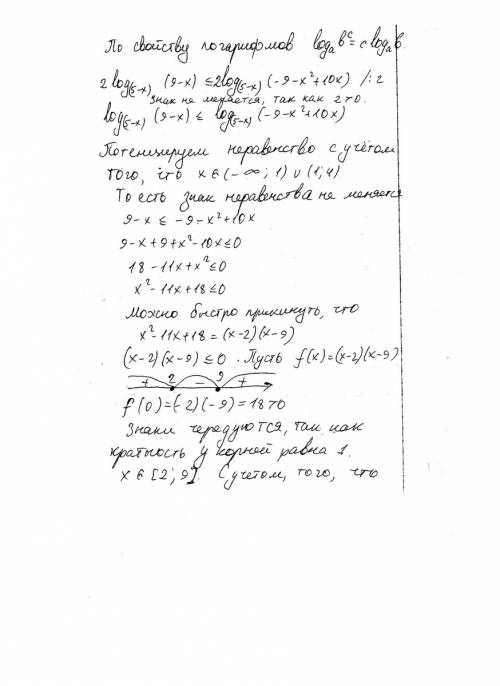 По свойству логарифмов log_a b^c = c log_a b.
2 log_(5-x) (9-x) ≤ 2 log_(5-x) (-9-x²+10x) /:2
Знак не меняется, так как 2>0.
log_(5-x) (9-x) ≤ log_(5-x) (-9-x²+10x)
Потенцируем неравенство с учётом
того, что x∈(-∞; 1)∪(1; 4)
То есть знак неравенства не меняется
9-x ≤ -9-x²+10x
9-x+9+x²-10x≤0
18-11x+x²≤0
x²-11x+18≤0
Можно быстро прикинуть, что
x²-11x+18=(x-2)(x-9)
(x-2)(x-9)≤0. Пусть f(x)=(x-2)(x-9)
+ 2 - 9 +
f(0)=(-2)(-9)=18>0
Знаки чередуются, так как
кратность у корней равна 1.
x∈[2; 9]. С учетом, того, что